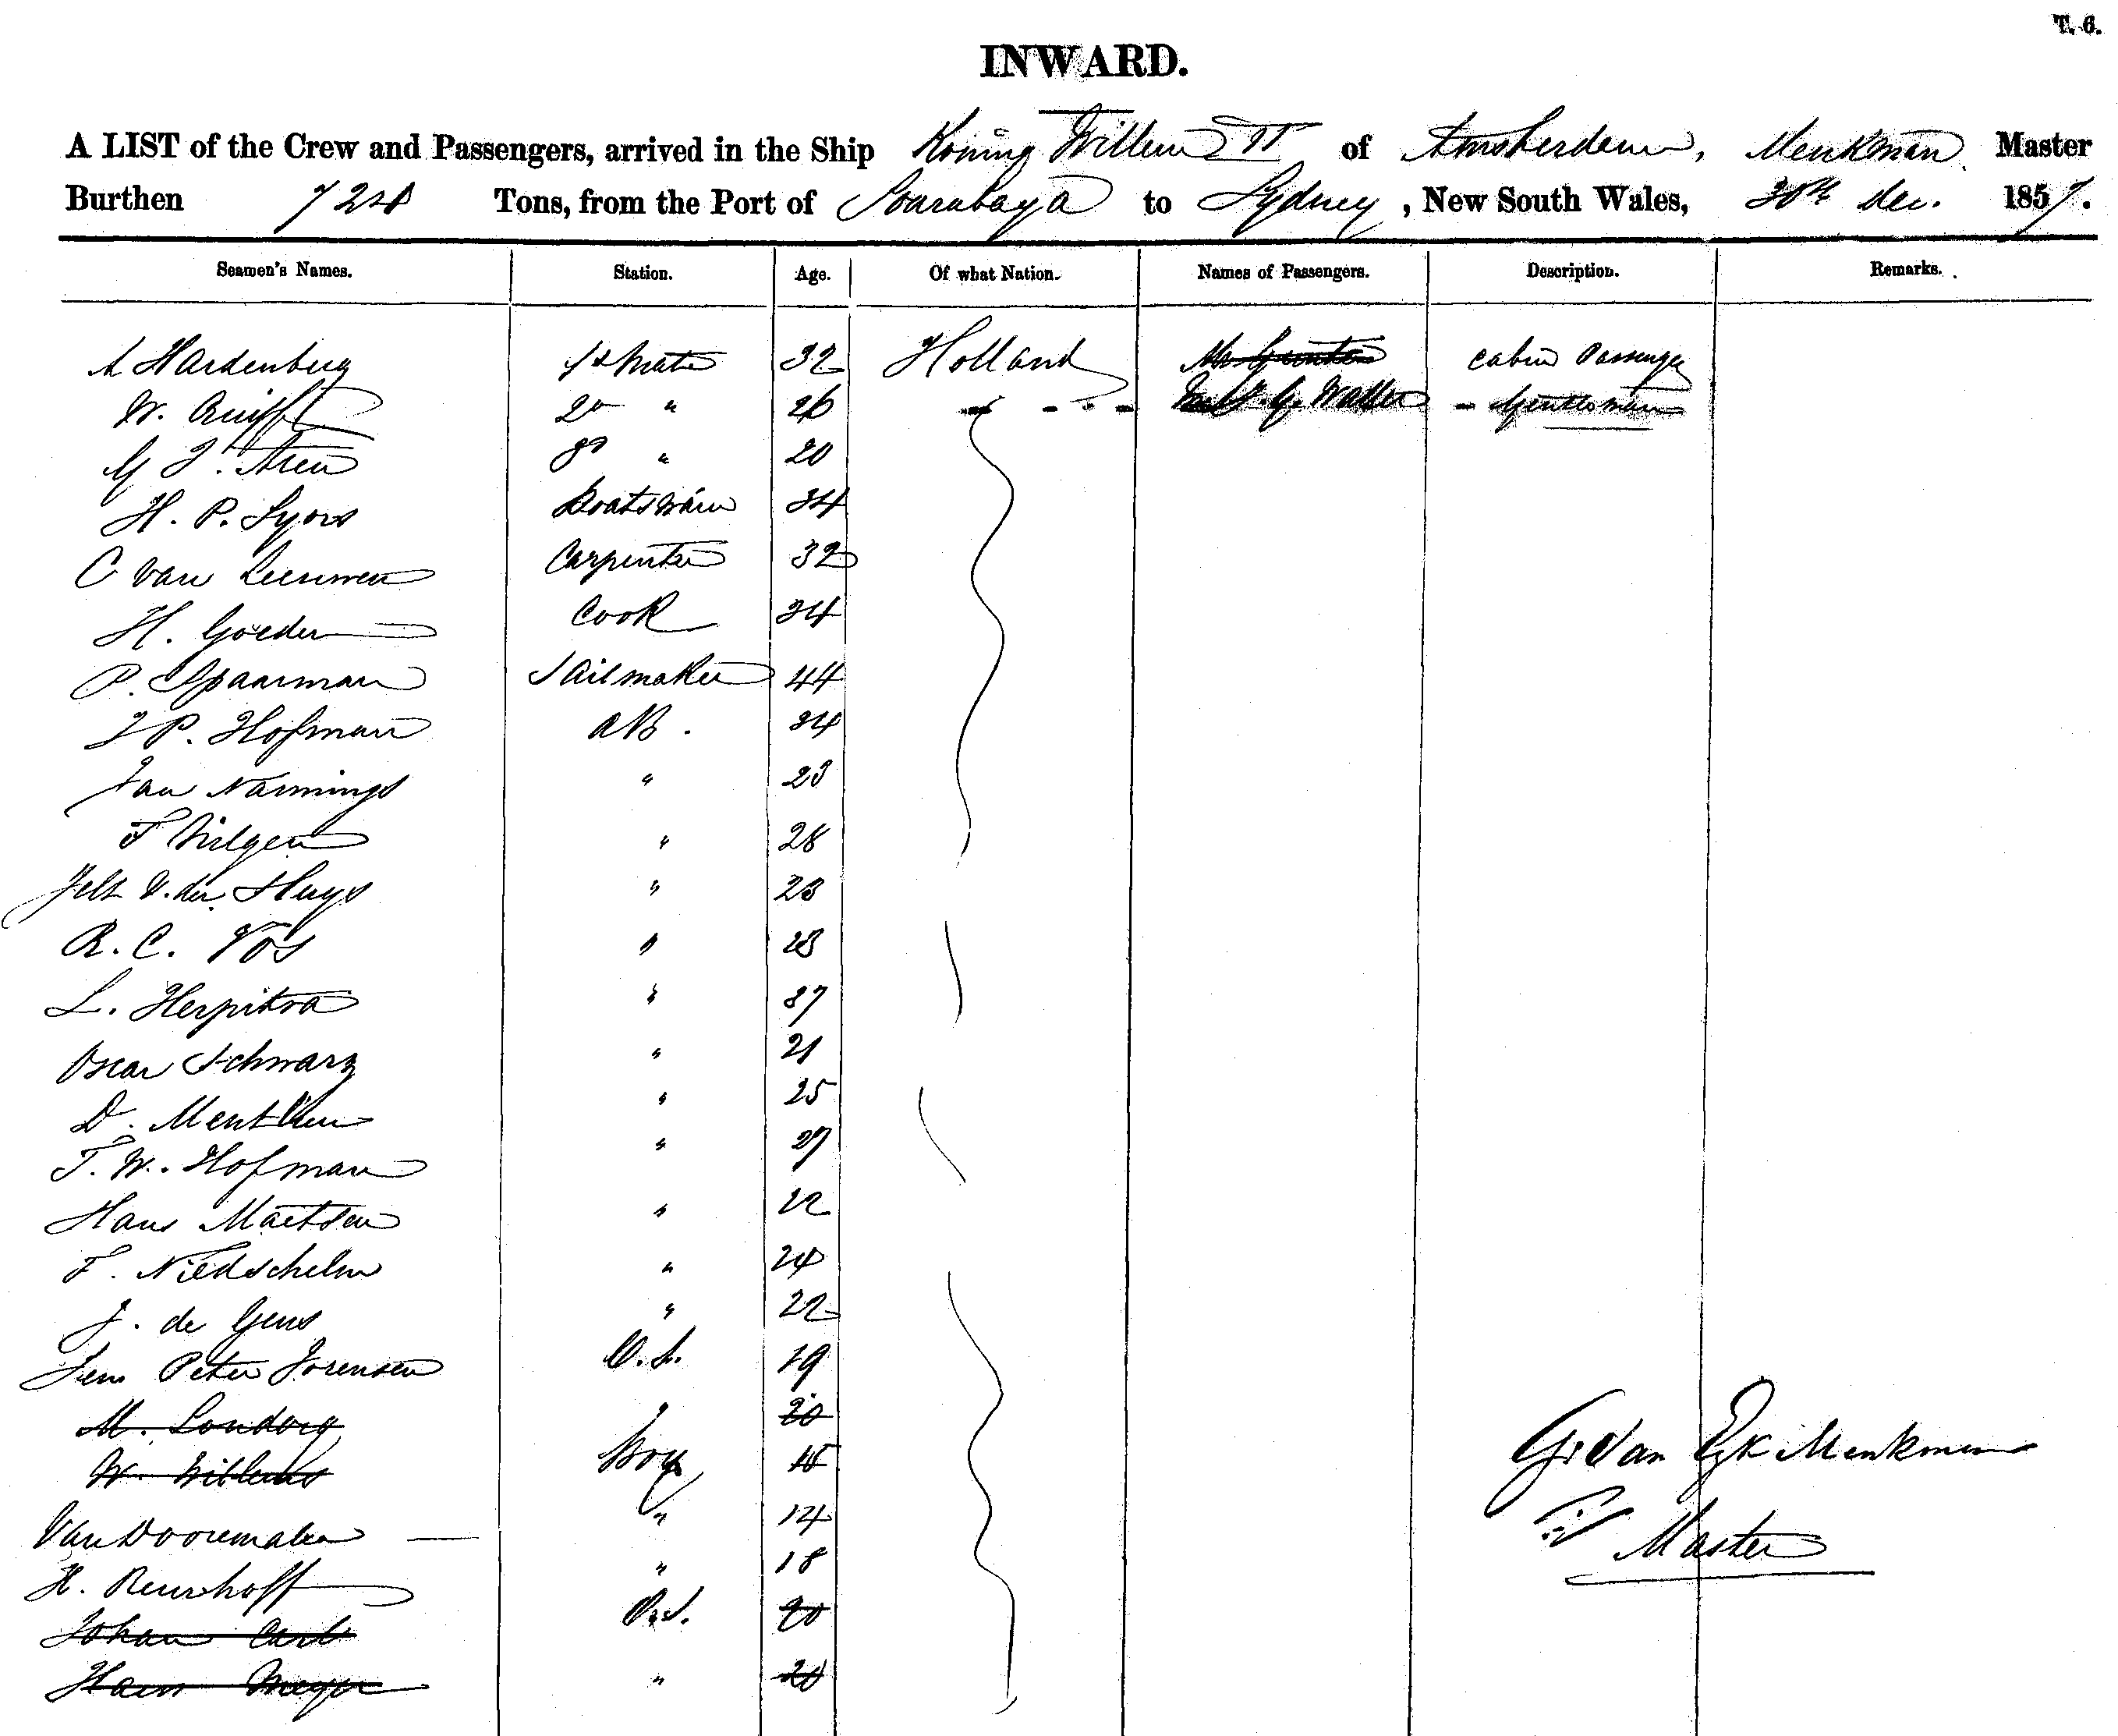 T. 6.
INWARD.
A LIST of the Crew and Passengers, arrived in the Ship Koning Willem II of Amsterdam, Menkman Master
Burthen 728 Tons, from the Port of Soarabaya to Sydney, New South Wales, 30th dec. 1857.
Seamen's Names. Station. Age. Of what Nation. Names of Passengers. Description. Remarks.
A Hardenberg 1st Mate 32 Holland Cabin Passenger
W. 2d " 26 Waller - Gentleman
G J. 3d " 20
H. P. Lyons Boatswain 34
C van Leeuwen Carpenter 32
H. Goeder Cook 24
P. Spaarman Sailmaker 44
J P. Hofman AB. 24
Jan Nannings " 23
F " 28
Jelt V. der Sluys " 23
R. C. Vos " 23
L. Herpitra " 37
Oscar Schwarz " 21
D. " 25
T. W. Hofman " 27
Hans Maetsen " 22
F. Niedschelm " 24
J. de Gens " 22
Jens Peter Jorensen O.S. 19
M. Londorg 20
W. Willems Boy 15
Van Dooremalen " 14
H. Reurhoff " 18
Johan Carl O.S. 20
Hans Meyer " 20
G. van Eyk Menkman
Master